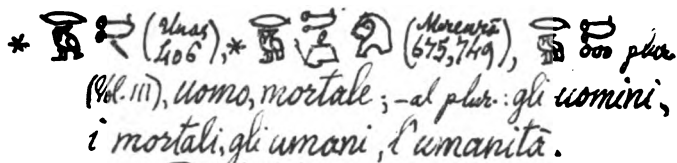 * (Unas 406), * (Merenrā 675, 749), plur.
(Vol. III), uomo, mortale; - al plur.: gli uomini,
i mortali, gli umani, l'umanità.